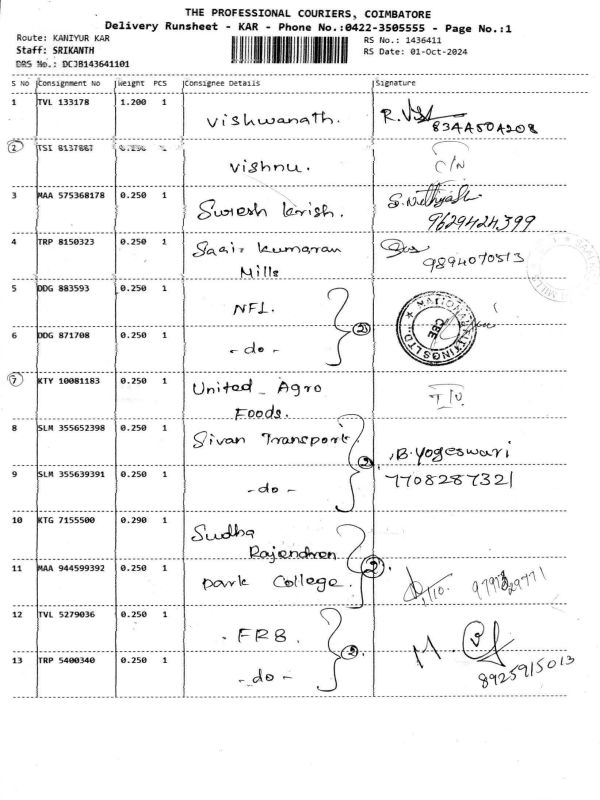 THE PROFESSIONAL COURIERS, COIMBATORE
Delivery Runsheet - KAR - Phone No.:0422-3505555 - Page No.:1
Route: KANIYUR KAR
RS No.: 1436411
Staff: SRIKANTH
RS Date: 01-Oct-2024
DRS No.: DCJB143641101
S No Consignment No Weight PCS Consignee Details Signature
1 TVL 133178 1.200 1 Vishwanath.
2 TSI 8137887 1 Vishnu.
3 MAA 575368178 0.250 1 Suresh krish.
9629424399
4 TRP 8150323 0.250 1 Sagir kumaran
Mills
9894070513
5 DDG 883593 0.250 1 NFL.
2
6 DDG 871708 0.250 1 - do -
7 KTY 10081183 0.250 1 United Agro
Foods.
8 SLM 355652398 0.250 1 Sivan Transport
B. Yogeswari
2
9 SLM 355639391 0.250 1 - do - 7708287321
10 KTG 7155500 0.290 1 Sudha
Rajendren
11 MAA 944599392 0.250 1 park College. 2
12 TVL 5279036 0.250 1 FRB.
2
13 TRP 5400340 0.250 1 - do -
8925915013